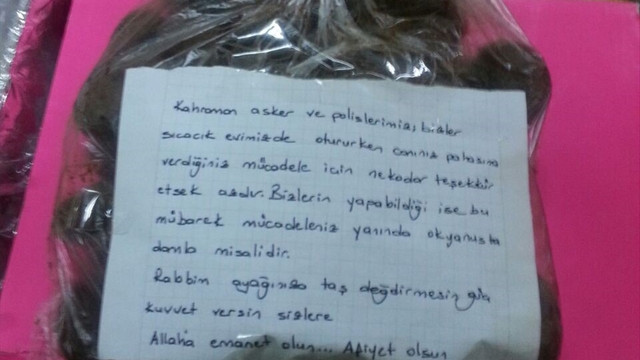 Kahraman asker ve polislerimiz, bizler
sıcacık evimizde otururken canınız pahasına
verdiğiniz mücadele için nekadar teşekkür
etsek azdır. Bizlerin yapabildiği ise bu
mübarek mücadeleniz yanında okyanusta
damla misalidir.
Rabbim ayağınıza taş değdirmesin güç
kuvvet versin sizlere
Allaha emanet olun... Afiyet olsun